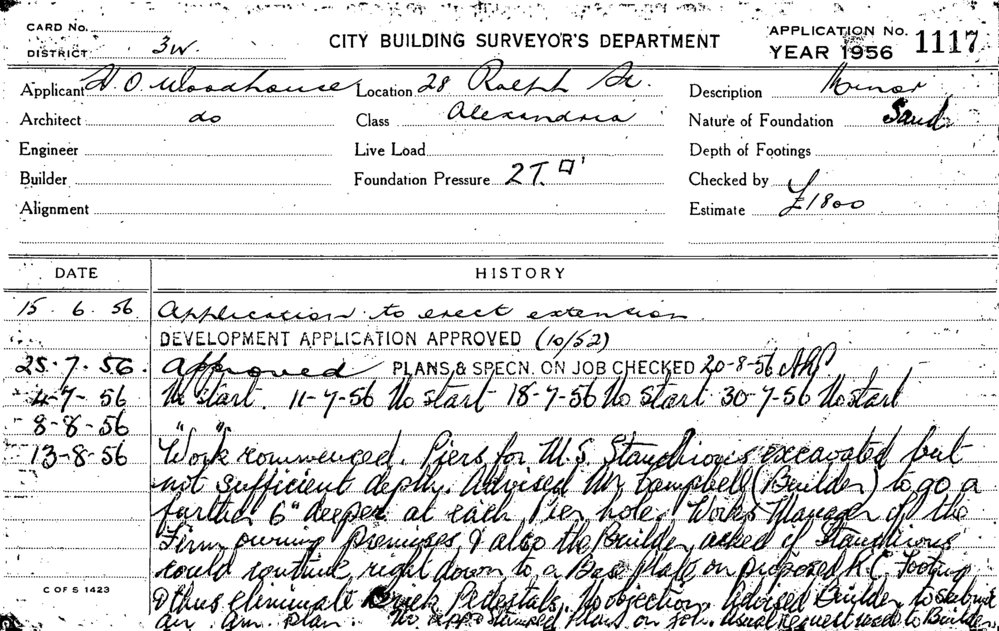 CARD No.
DISTRICT 3W.
CITY BUILDING SURVEYOR'S DEPARTMENT
APPLICATION No. 1117
YEAR 1956
Applicant H. O. Woodhouse Location 28 Ralph St. Description Minor
Architect do Class Alexandria Nature of Foundation Sand
Engineer Live Load Depth of Footings
Builder Foundation Pressure 2T. □' Checked by
Alignment Estimate £1800
DATE HISTORY
15. 6. 56 Application to erect extension
DEVELOPMENT APPLICATION APPROVED (10/52)
25.7.56. Approved PLANS & SPECN. ON JOB CHECKED 20-8-56
4-7-56 No start. 11-7-56 No start 18-7-56 No start 30-7-56 No start
8-8-56 " "
13-8-56 Work commenced. Piers for M.S. Stanchions excavated but
not sufficient depth. Advised Mr Campbell (Builder) to go a
further 6" deeper at each Pier hole. Works Manager of the
Firm owning premises, & also the Builder, asked if Stanchions
could continue right down to a Base Plate on proposed R.C. Footing
& thus eliminate Brick Pedestals. No objection. Advised Builder to submit
an am. plan. No app stamped Plans on job. Usual request made to Builder.
C OF S 1423